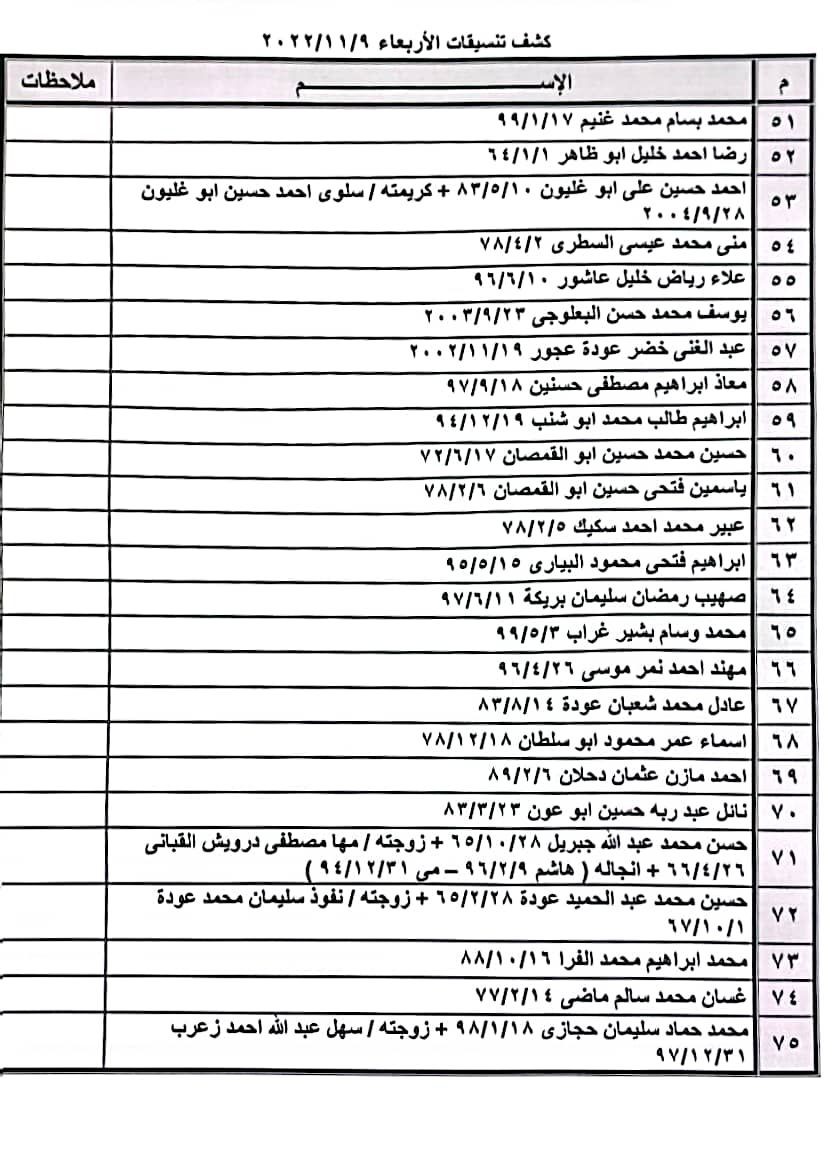 كشف تنسيقات الأربعاء ٢٠٢٢/١١/٩
م الإســـــــــــــم ملاحظات
٥١ محمد بسام محمد غنيم ٩٩/١/١٧
٥٢ رضا احمد خليل ابو ظاهر ٦٤/١/١
٥٣ احمد حسين على ابو غليون ٨٣/٥/١٠ + كريمته / سلوى احمد حسين ابو غليون
٢٠٠٤/٩/٢٨
٥٤ منى محمد عيسى السطرى ٧٨/٤/٢
٥٥ علاء رياض خليل عاشور ٩٦/٦/١٠
٥٦ يوسف محمد حسن البعلوجى ٢٠٠٣/٩/٢٣
٥٧ عبد الغنى خضر عودة عجور ٢٠٠٢/١١/١٩
٥٨ معاذ ابراهيم مصطفى حسنين ٩٧/٩/١٨
٥٩ ابراهيم طالب محمد ابو شنب ٩٤/١٢/١٩
٦٠ حسين محمد حسين ابو القمصان ٧٢/٦/١٧
٦١ ياسمين فتحى حسين ابو القمصان ٧٨/٢/٦
٦٢ عبير محمد احمد سكيك ٧٨/٢/٥
٦٣ ابراهيم فتحى محمود البيارى ٩٥/٥/١٥
٦٤ صهيب رمضان سليمان بريكة ٩٧/٦/١١
٦٥ محمد وسام بشير غراب ٩٩/٥/٣
٦٦ مهند احمد نمر موسى ٩٦/٤/٢٦
٦٧ عادل محمد شعبان عودة ٨٣/٨/١٤
٦٨ اسماء عمر محمود ابو سلطان ٧٨/١٢/١٨
٦٩ احمد مازن عثمان دحلان ٨٩/٢/٦
٧٠ نائل عبد ربه حسين ابو عون ٨٣/٣/٢٣
٧١ حسن محمد عبد الله جبريل ٦٥/١٠/٢٨ + زوجته / مها مصطفى درويش القبانى
٦٦/٤/٢٦ + انجاله ( هاشم ٩٦/٢/٩ – مى ٩٤/١٢/٣١ )
٧٢ حسين محمد عبد الحميد عودة ٦٥/٢/٢٨ + زوجته / نفوذ سليمان محمد عودة
٦٧/١٠/١
٧٣ محمد ابراهيم محمد الفرا ٨٨/١٠/١٦
٧٤ غسان محمد سالم ماضى ٧٧/٢/١٤
٧٥ محمد حماد سليمان حجازى ٩٨/١/١٨ + زوجته / سهل عبد الله احمد زعرب
٩٧/١٢/٣١